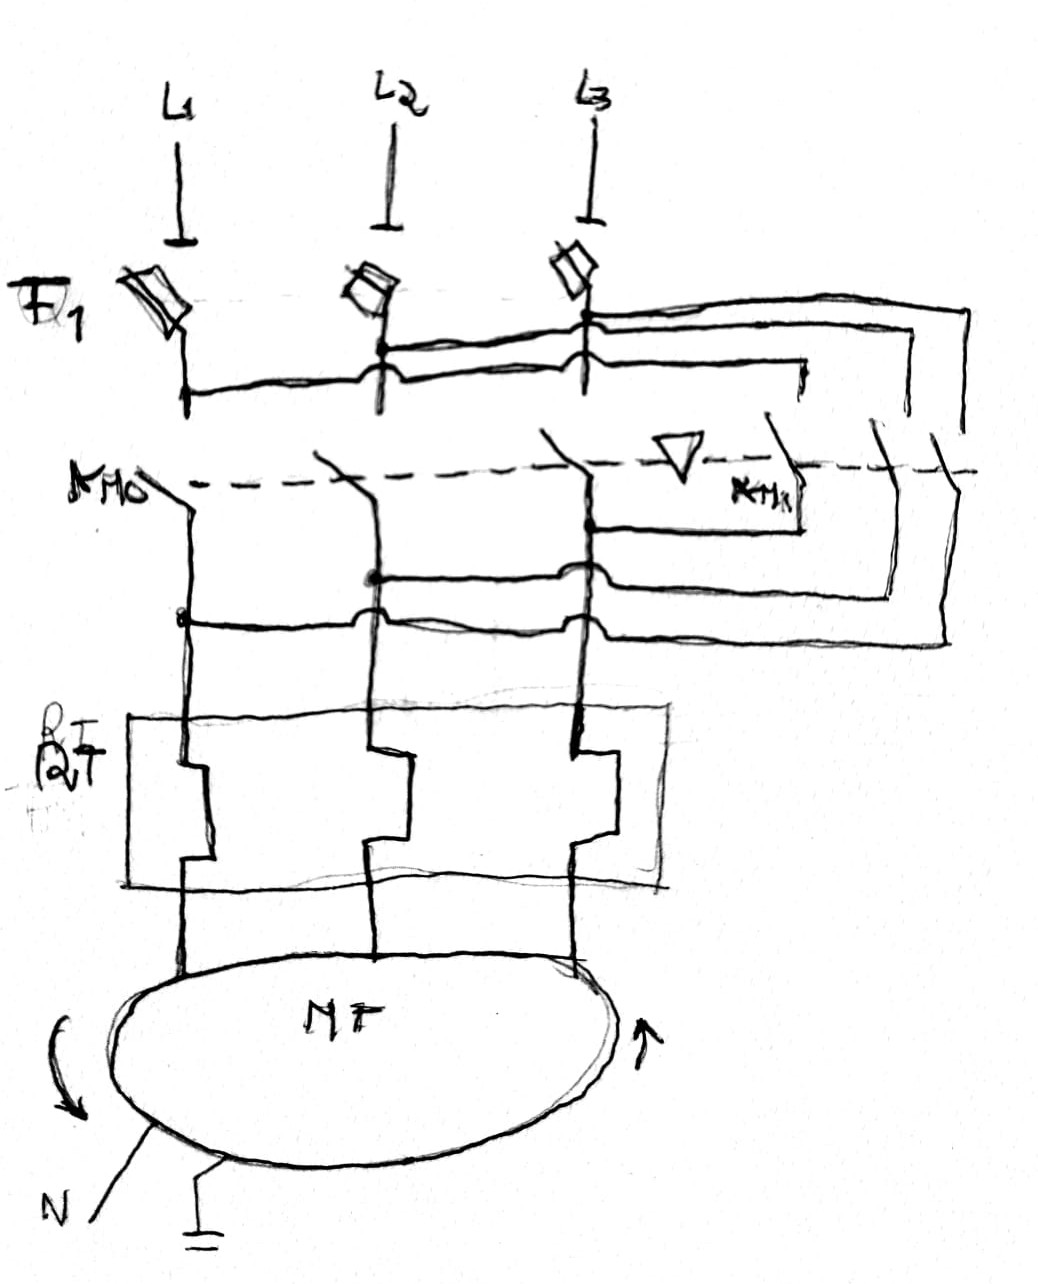 L1 L2 L3
F1
KM0 KM1
RT
MF
N